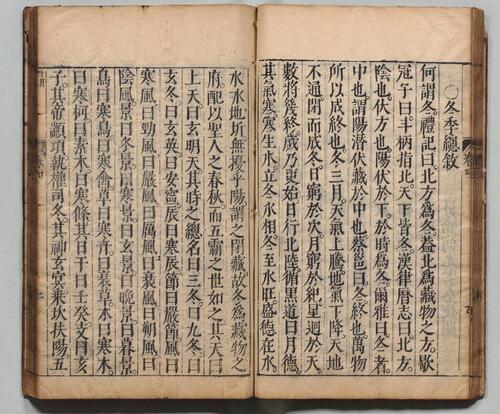 ○冬季總敘
何謂冬。禮記曰。北方爲冬。蓋北爲藏物之方。歇
冠子曰。斗柄指北。天下皆冬。漢律曆志曰。北方。
陰也。伏方也。陽伏於下。於時爲冬。爾雅曰。冬者。
中也。謂陽潛伏藏於中也。蔡邕曰。冬終也。萬物
所以成終也。冬三月。天氣上騰。地氣下降。天地
不通。閉而成冬。日窮於次。月窮於紀。星迴於天。
數將幾終。歲乃更始。日行北陸。循黑道曰。月德。
其氣寒。寒生水。立冬水相。冬至水旺。盛德在水。
水水地坼無擾乎陽。謂之閉藏。故冬爲藏物之
府。配以聖人之春秋。而五霸之世如之。其天曰
上天。曰玄明天。其時之總名曰三冬。曰九冬。曰
玄冬。曰玄英。曰安寧。辰曰寒辰。節曰嚴節。風曰
寒風。曰勁風。曰嚴風。曰厲風。曰衰風。曰朔風。曰
陰風。景曰冬景。曰寒景。曰玄景。曰晚景。曰暮景。
鳥曰寒鳥。曰寒禽。草曰寒卉。曰衰草。木曰寒木。
曰寒柯。曰素木。曰寒條。其日干曰壬癸。支曰亥
子。其帝顓頊。執權司冬。其神玄冥。乘坎扶陽。五